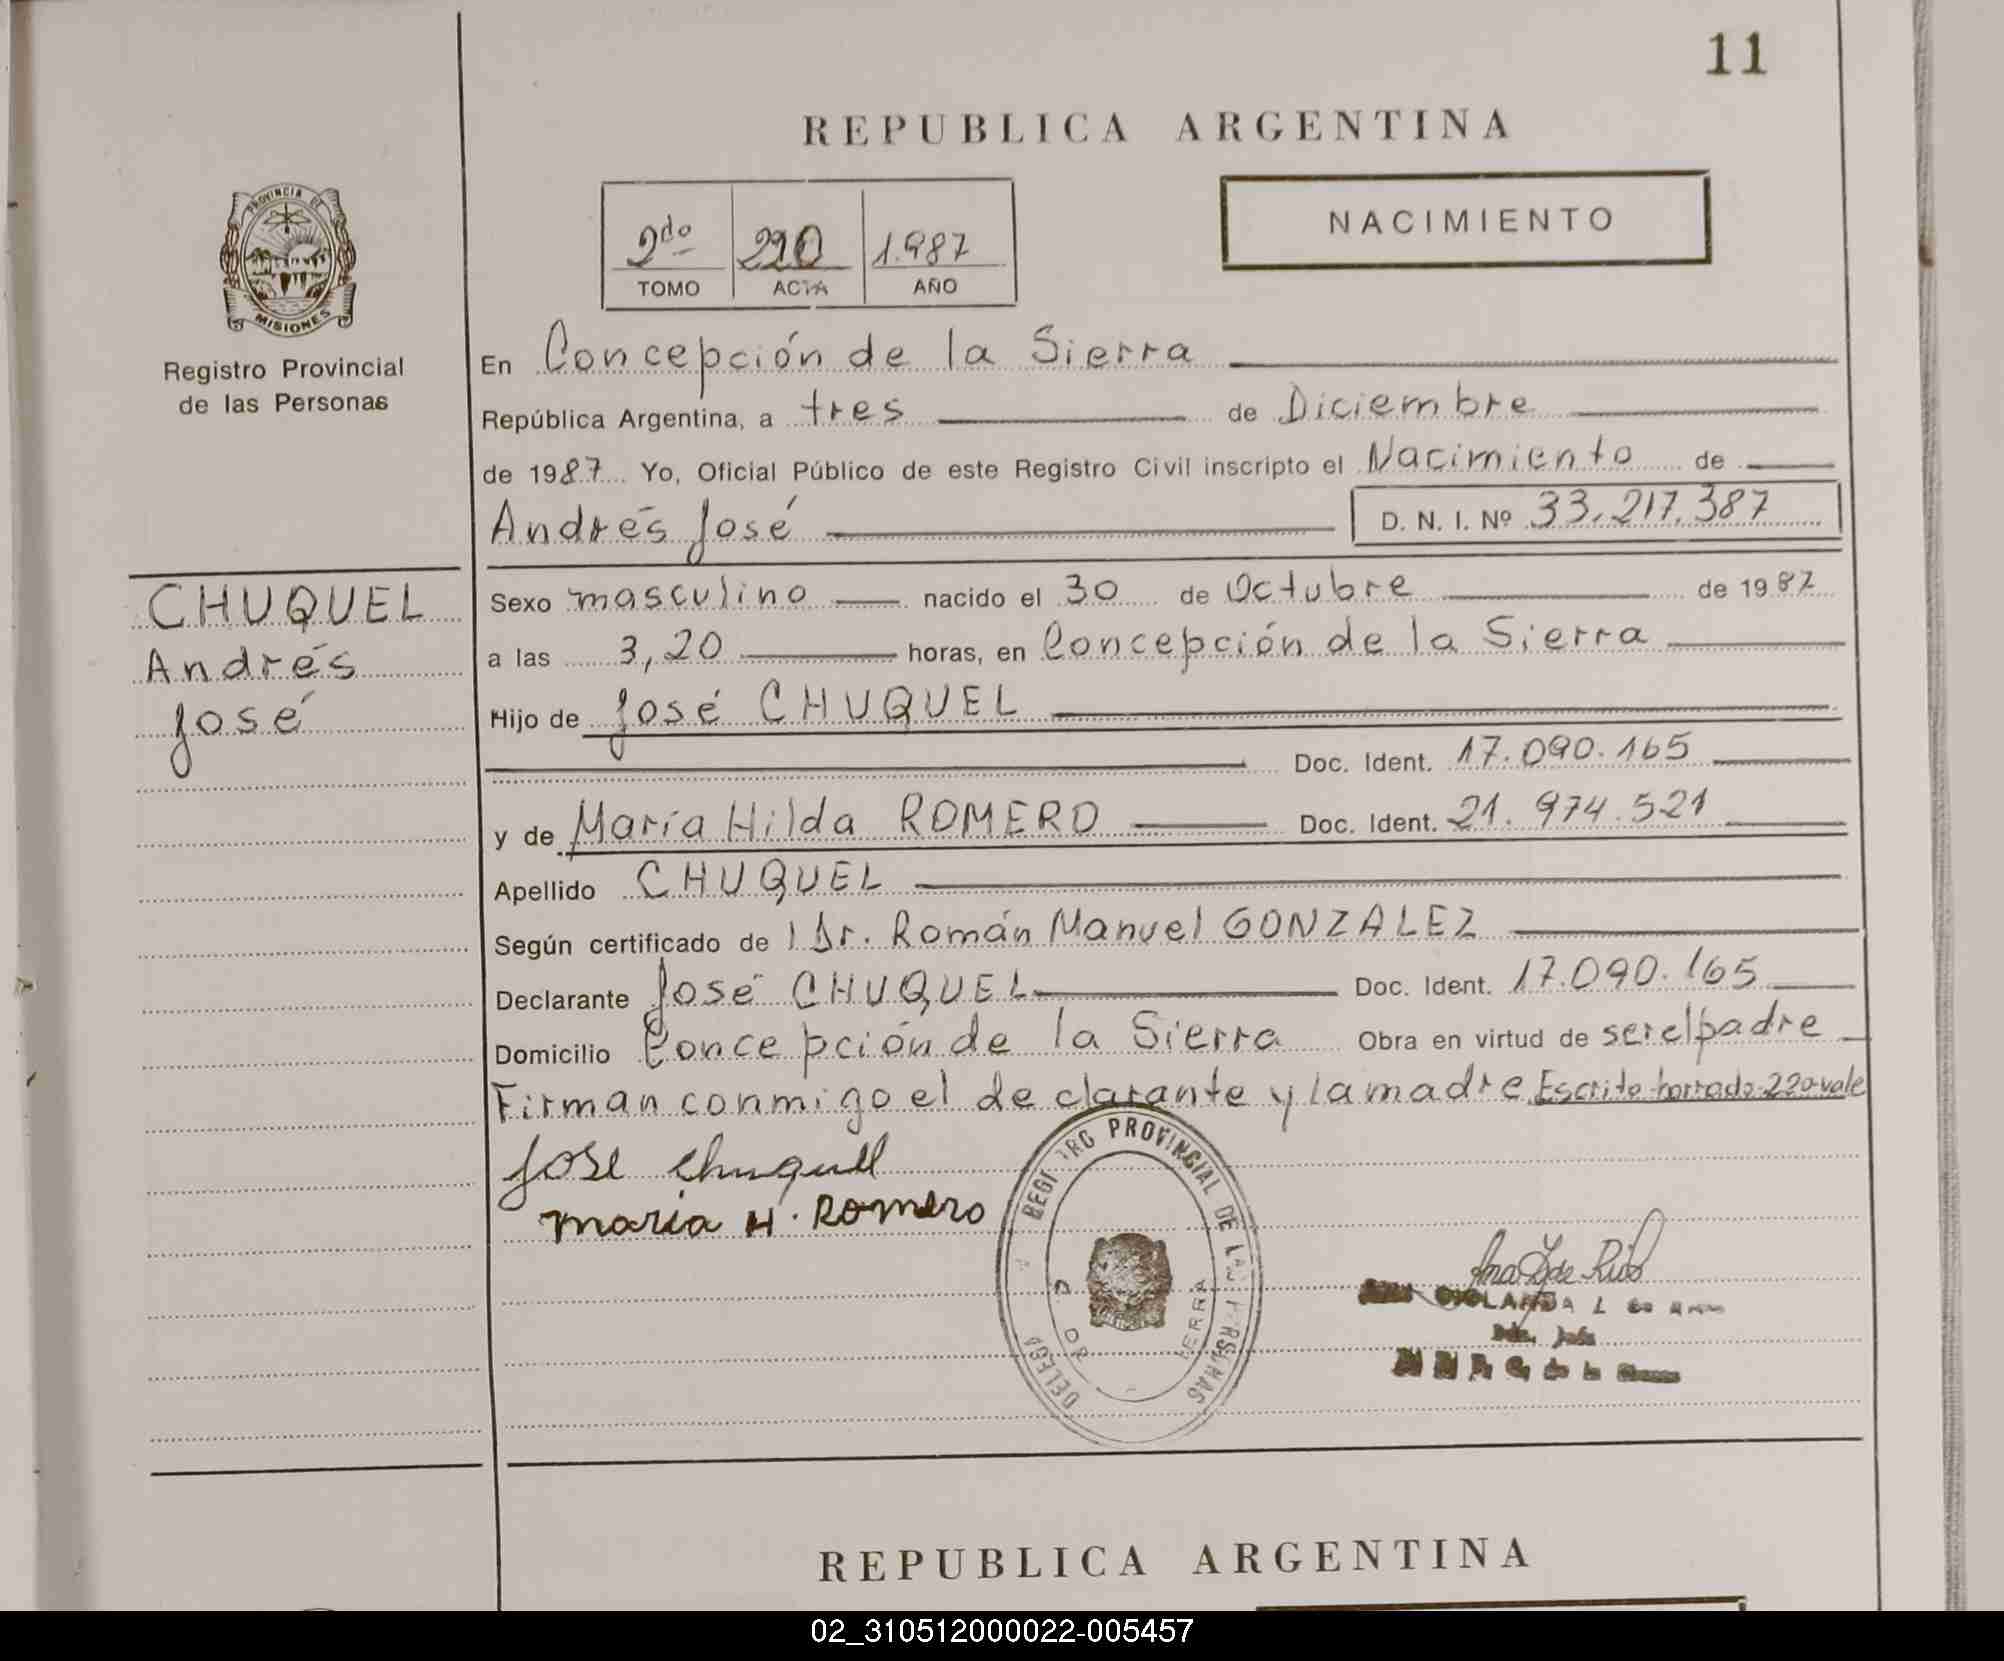 11
REPUBLICA ARGENTINA
NACIMIENTO
2do 220 1.987
TOMO ACTA AÑO
PROVINCIA DE
MISIONES
Registro Provincial
de las Personas
En Concepción de la Sierra
República Argentina, a tres de Diciembre
de 1987 Yo, Oficial Público de este Registro Civil inscripto el Nacimiento de
Andrés José D. N. I. Nº 33.217.387
CHUQUEL
Andrés
José
Sexo masculino nacido el 30 de Octubre de 1987
a las 3,20 horas, en Concepción de la Sierra
Hijo de José CHUQUEL
Doc. Ident. 17.090.165
y de María Hilda ROMERO Doc. Ident. 21.974.521
Apellido CHUQUEL
Según certificado de l Dr. Román Manuel GONZALEZ
Declarante José CHUQUEL Doc. Ident. 17.090.165
Domicilio Concepción de la Sierra Obra en virtud de ser el padre
Firman conmigo el declarante y la madre Escrito borrado-220-vale
Jose Chuquel
maria H. Romero
REGISTRO PROVINCIAL DE LAS PERSONAS
Ana de Ríos
de la Sierra
REPUBLICA ARGENTINA
02_310512000022-005457